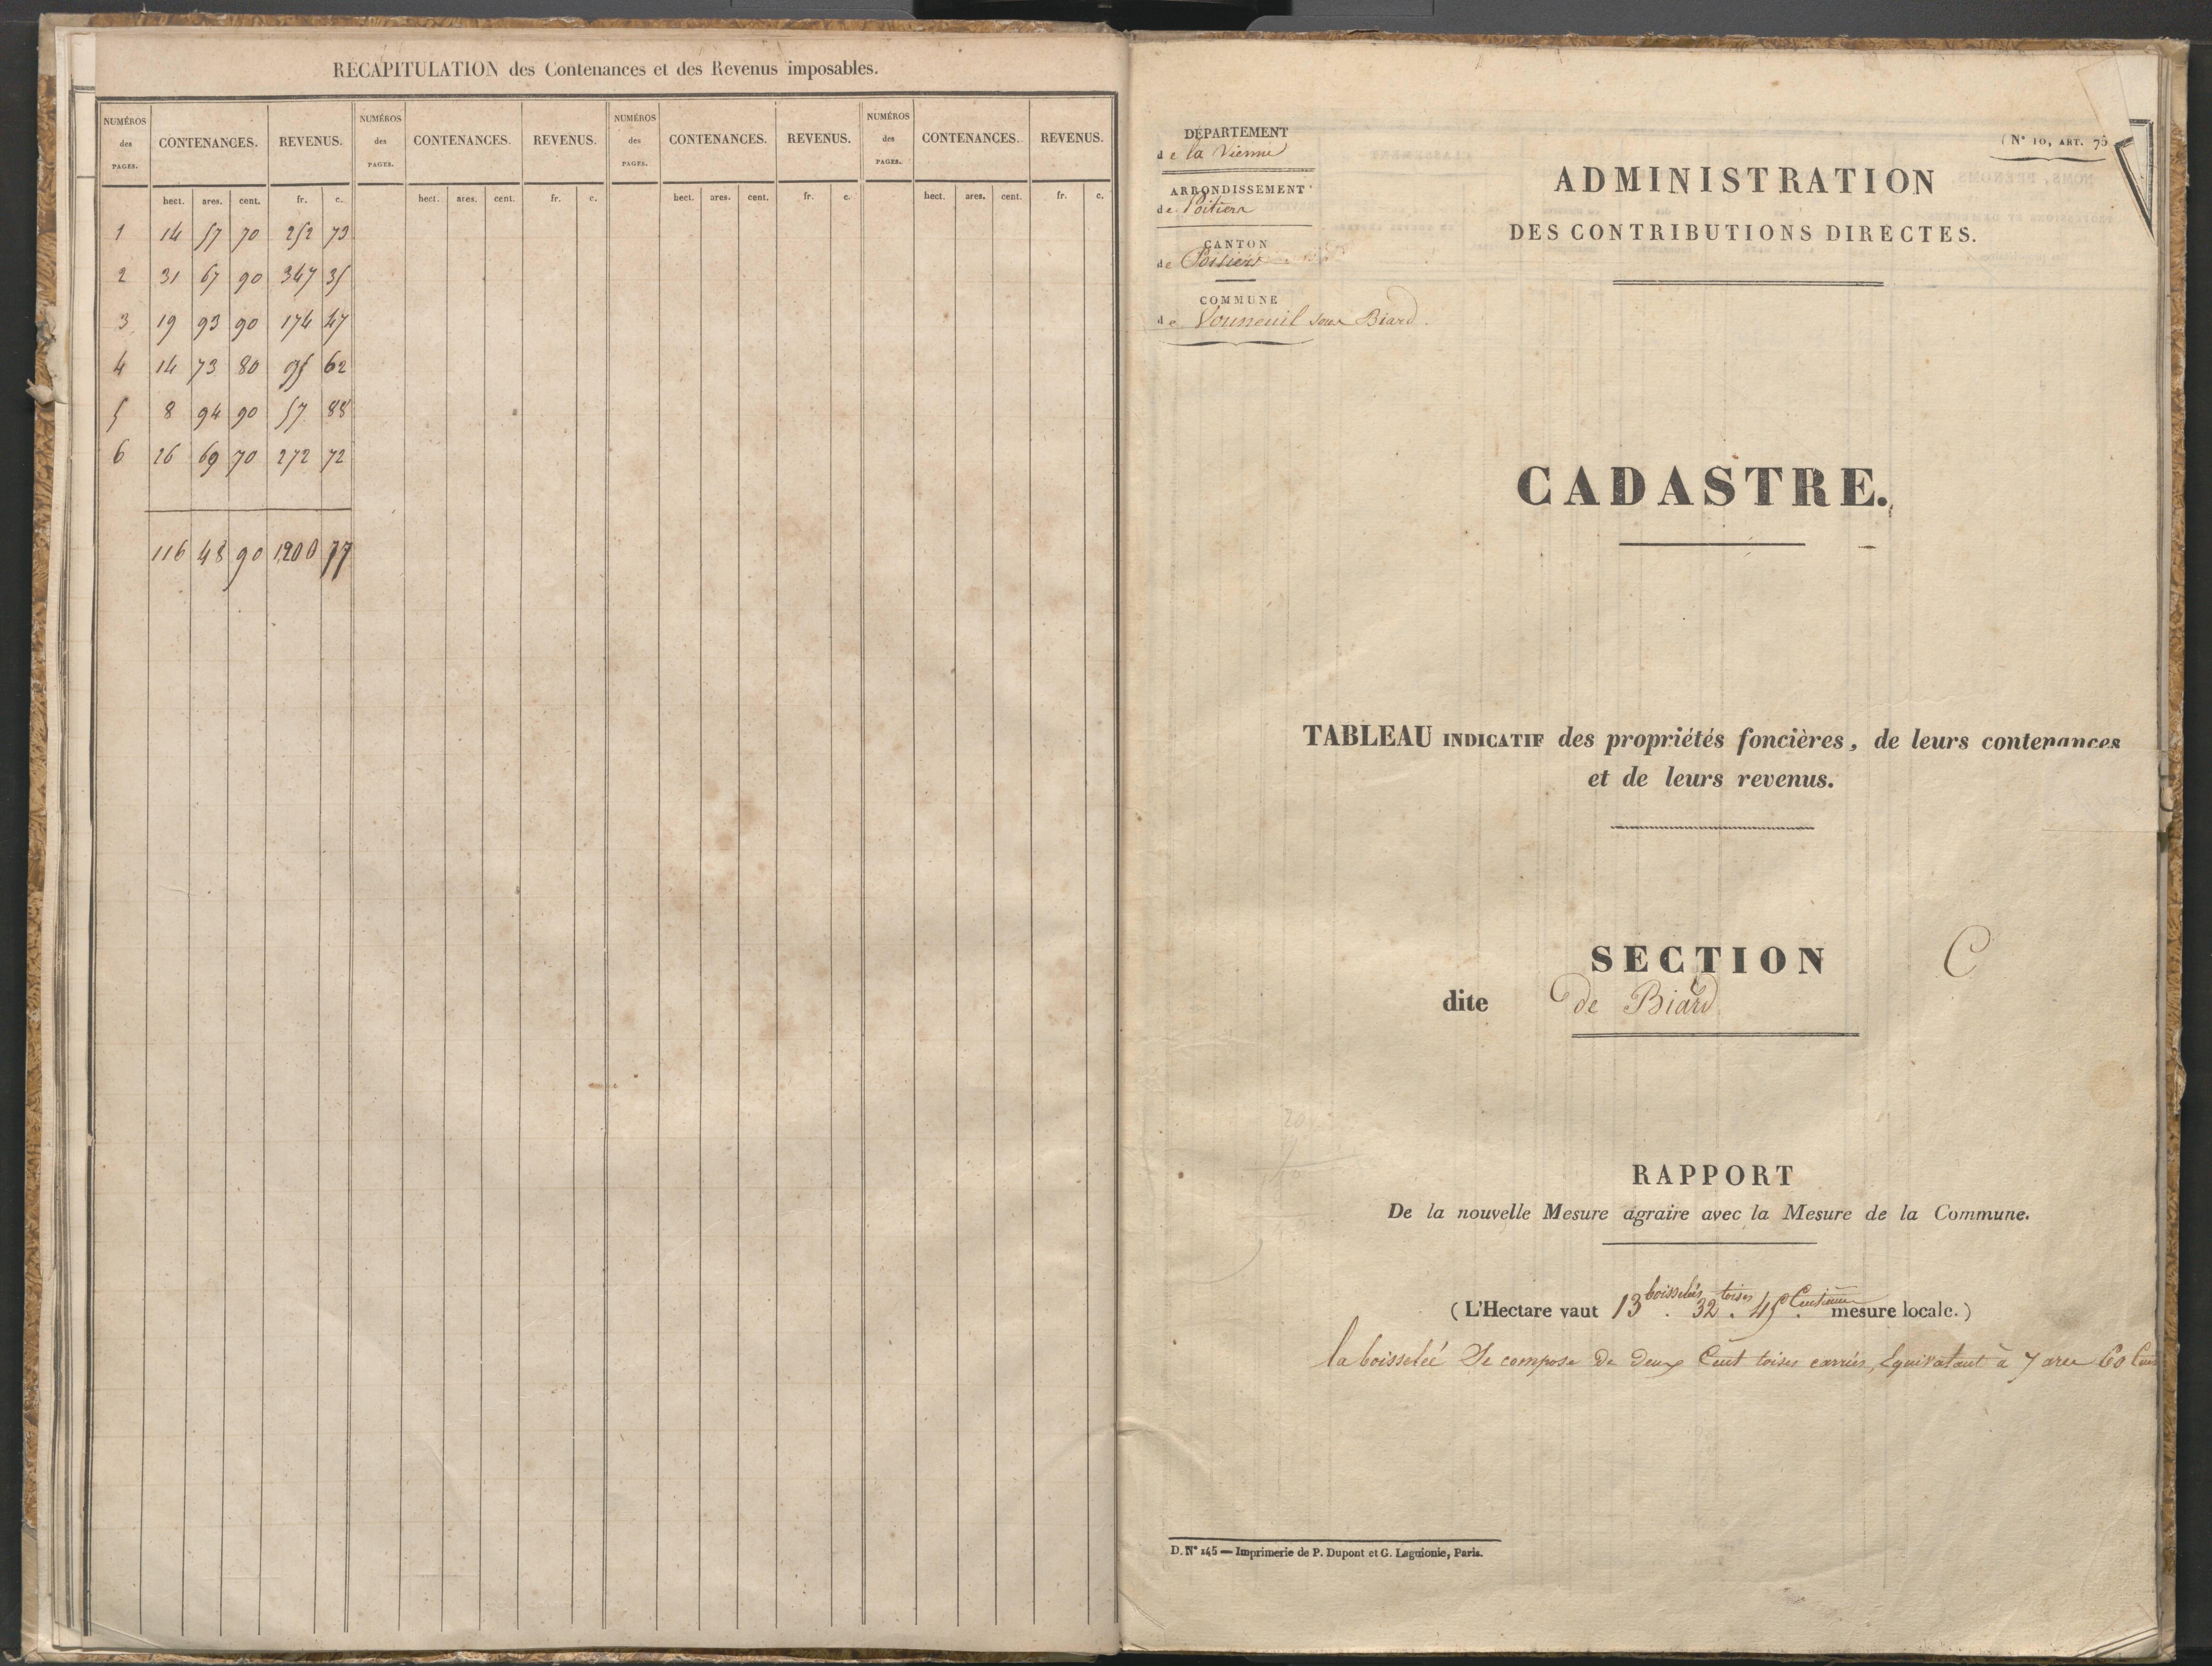 RECAPITULATION des Contenances et des Revenus imposables.
NUMÉROS des PAGES. CONTENANCES. REVENUS. NUMÉROS des PAGES. CONTENANCES. REVENUS. NUMÉROS des PAGES. CONTENANCES. REVENUS. NUMÉROS des PAGES. CONTENANCES. REVENUS.
hect. ares. cent. fr. c. hect. ares. cent. fr. c. hect. ares. cent. fr. c. hect. ares. cent. fr. c.
1 14 57 70 252 73
2 31 67 90 347 35
3 19 93 90 174 47
4 14 73 80 95 62
5 8 94 90 57 88
6 26 69 70 272 72
116 48 90 1200 77
DÉPARTEMENT
de la Vienne
ARRONDISSEMENT
de Poitiers
CANTON
de Poitiers
COMMUNE
de Vouneuil sous Biard.
(N° 10, ART. 75
ADMINISTRATION
DES CONTRIBUTIONS DIRECTES.
CADASTRE.
TABLEAU INDICATIF des propriétés foncières, de leurs contenances
et de leurs revenus.
SECTION C
dite de Biard
RAPPORT
De la nouvelle Mesure agraire avec la Mesure de la Commune.
(L'Hectare vaut 13 boisselées. 32 toises. 45 Centièmes. mesure locale.)
la boisselée Se compose de deux Cent toises carrées, Equivatant à 7 ares 60 Cent
D. N° 145 — Imprimerie de P. Dupont et G. Laguionie, Paris.